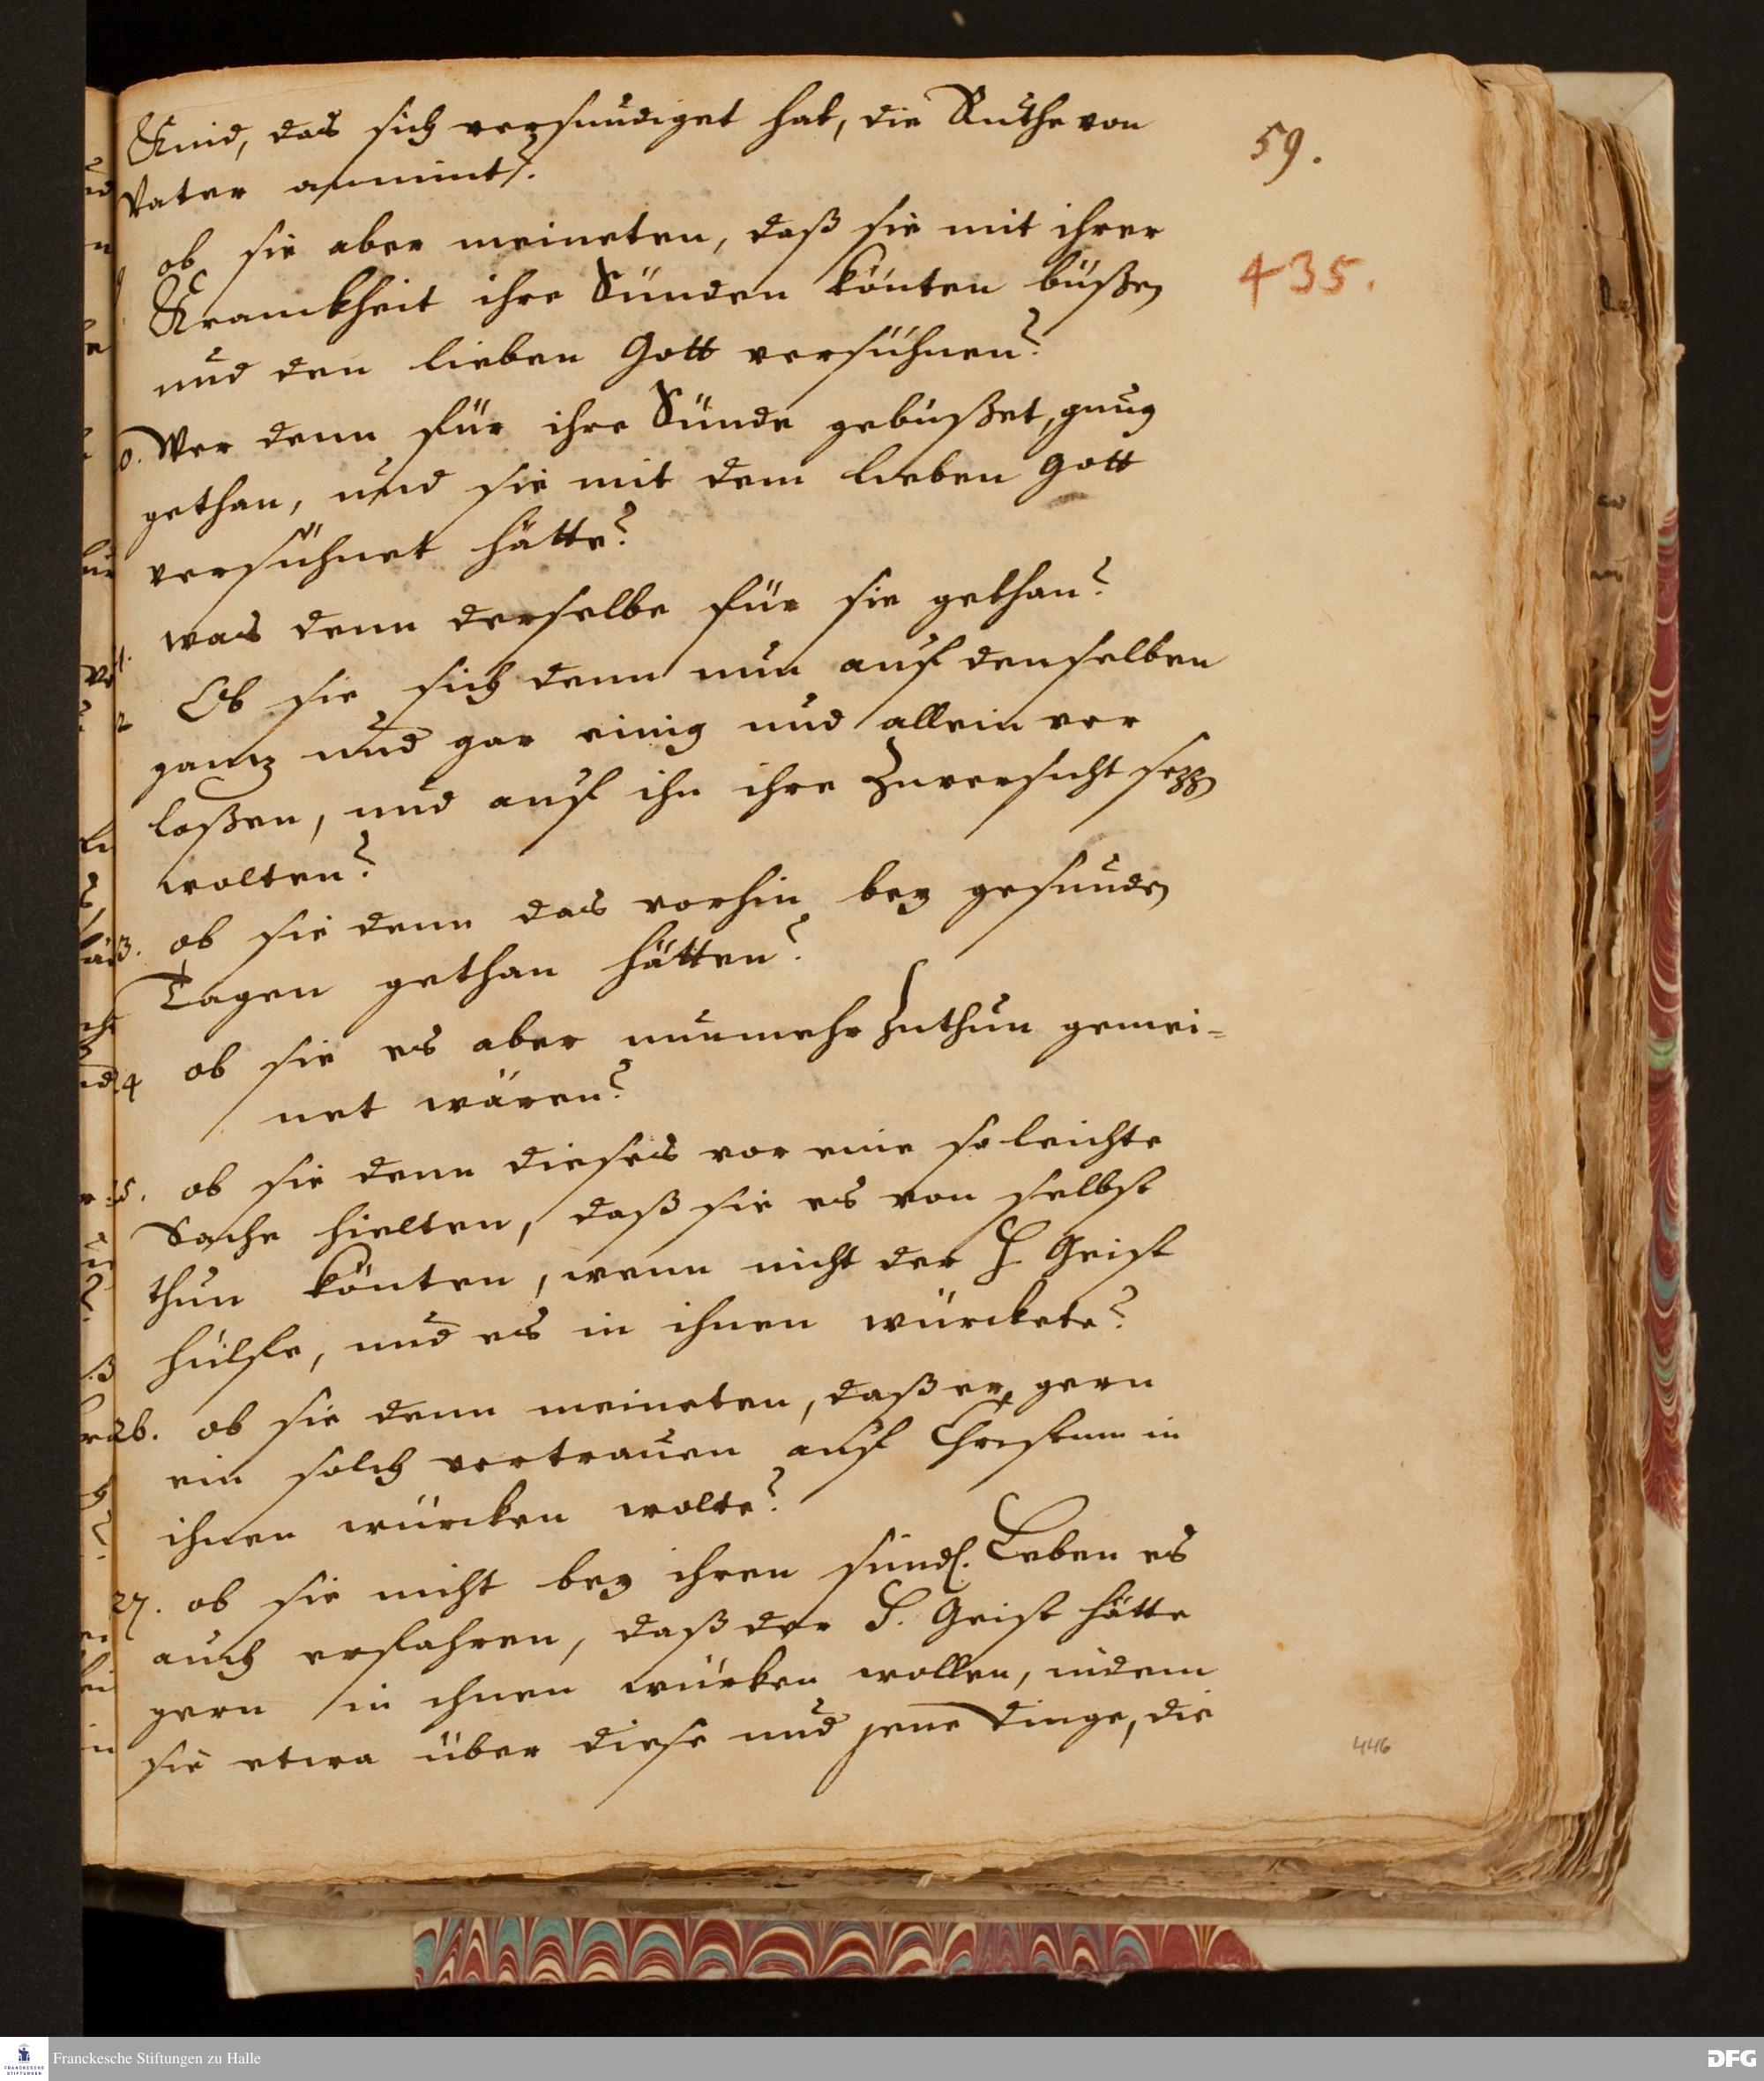 Kind, das sich versündiget hat, die Ruthe von
Vater annimt?
59.
ob sie aber meineten, daß sie mit ihrer
Kranckheit ihre Sünden könten büßen
435.
und den lieben Gott versühnen?
0. Wer denn für ihre Sünde gebüßet, gnug
gethan, und sie mit dem lieben Gott
versühnet hätte?
1. was denn derselbe für sie gethan?
2 Ob sie sich denn nun auf denselben
gantz und gar einig und allein ver
laßen, und auf ihn ihre Zuversicht sezzen
wolten?
3. ob sie denn das vorhin bey gesunden
Tagen gethan hätten?
4 ob sie es aber nunmehr zuthun gemei=
net wären?
5. ob sie denn dieses vor eine so leichte
Sache hielten, daß sie es von selbst
thun könten, wenn nicht der H. Geist
hülfe, und es in ihnen würckete?
26. ob sie denn meineten, daß er gern
ein solch vertrauen auf Christum in
ihnen würcken wolte?
27. ob sie nicht bey ihren sündl. Leben es
auch erfahren, daß der H. Geist hätte
gern in ihnen würken wollen, indem
sie etwa über diese und jene Dinge, die
446
Franckesche Stiftungen zu Halle
FRANCKESCHE
STIFTUNGEN
DFG